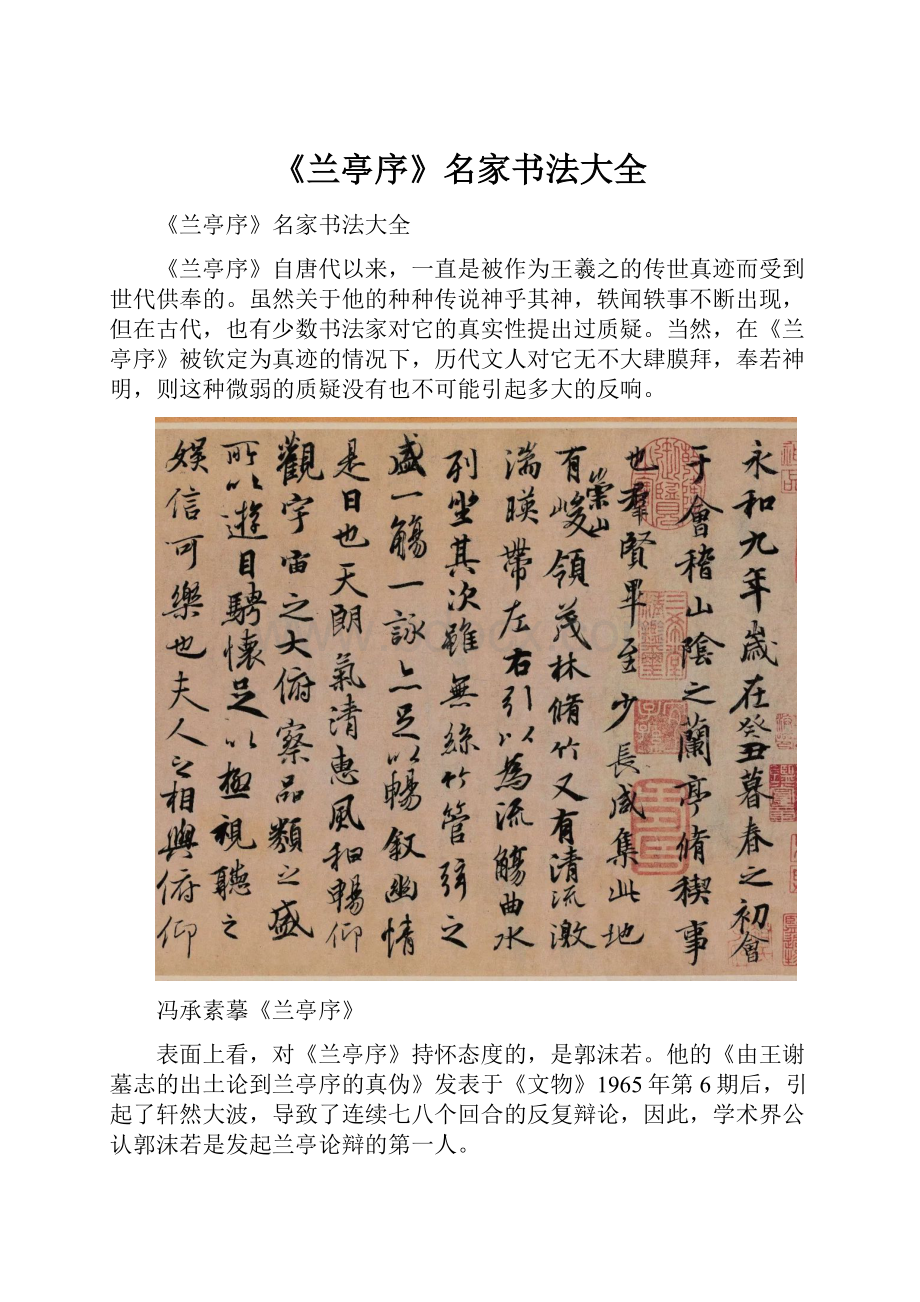 《兰亭序》名家书法大全
《兰亭序》名家书法大全
《兰亭序》自唐代以来，一直是被作为王羲之的传世真迹而受到
世代供奉的。虽然关于他的种种传说神乎其神，轶闻轶事不断出现，
但在古代，也有少数书法家对它的真实性提出过质疑。当然，在《兰
亭序》被钦定为真迹的情况下，历代文人对它无不大肆膜拜，奉若神
明，则这种微弱的质疑没有也不可能引起多大的反响。
永和九年歲在癸丑暮春之初會
于會稽山陰之蘭亭脩稧事
也羣賢畢至少長咸集此地
有崇山峻領茂林脩竹又有清流激
湍暎帶左右引以為流觴曲水
列坐其次雖無絲竹管弦之
盛一觴一詠亦足以暢敘幽情
是日也天朗氣清惠風和暢仰
觀宇宙之大俯察品類之盛
所以遊目騁懷足以極視聽之
娛信可樂也夫人之相與俯仰
冯承素摹《兰亭序》
表面上看，对《兰亭序》持怀态度的，是郭沫若。他的《由王谢
墓志的出土论到兰亭序的真伪》发表于《文物》1965年第6期后，引
起了轩然大波，导致了连续七八个回合的反复辩论，因此，学术界公
认郭沫若是发起兰亭论辩的第一人。